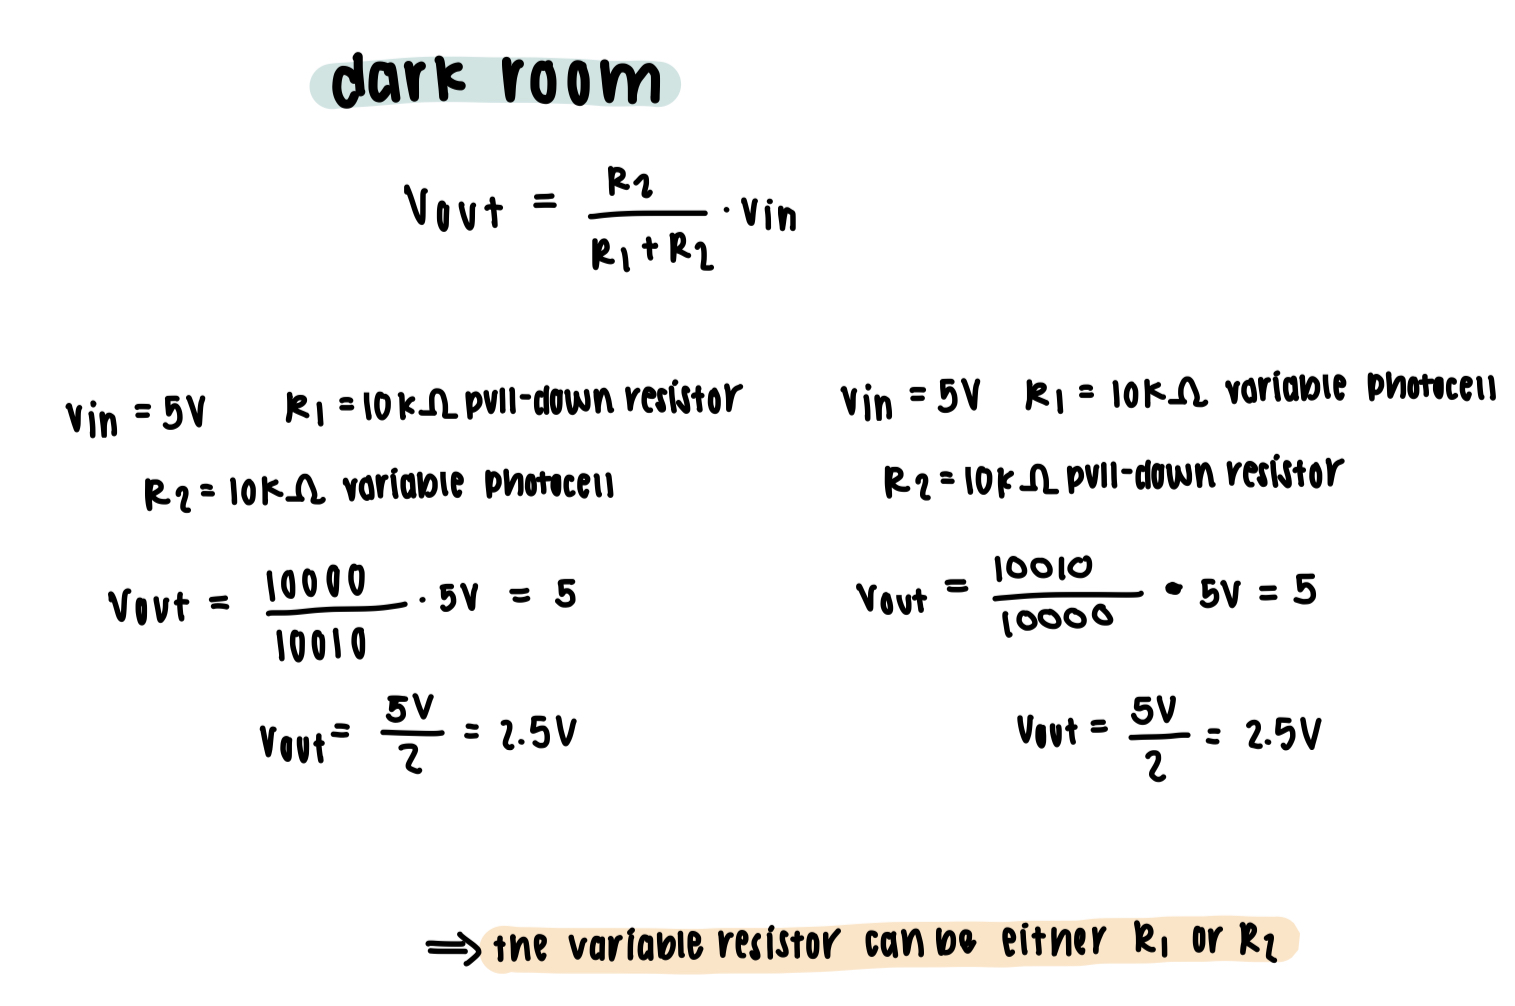 dark room
Vout = R2 / R1 + R2 · Vin
Vin = 5V R1 = 10KΩ pull-down resistor
R2 = 10KΩ variable photocell
Vout = 10000 / 10010 · 5V = 5
Vout = 5V / 2 = 2.5V
Vin = 5V R1 = 10KΩ variable photocell
R2 = 10KΩ pull-down resistor
Vout = 10010 / 10000 • 5V = 5
Vout = 5V / 2 = 2.5V
⇒ the variable resistor can be either R1 or R2